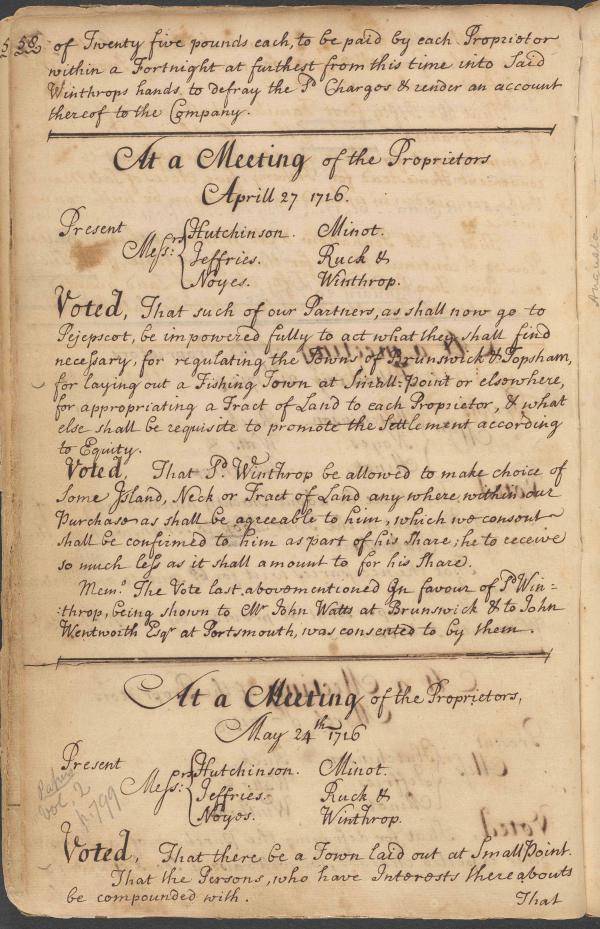 58
of Twenty five pounds each, to be paid by each Proprietor
within a Fortnight at furthest from this time into Said
Winthrops hands to defray the Sd. Charges & render an account
thereof to the Company.
At a Meeting of the Proprietors
Aprill 27 1716.
Present
Messrs: Hutchinson. Minot.
Jeffries. Ruck &
Noyes. Winthrop.
Voted, That such of our Partners, as shall now go to
Pejepscot, be impowered fully to act what they shall find
necessary, for regulating the Towns of Brunswick & Topsham,
for laying out a Fishing Town at Small-Point or elsewhere,
for appropriating a Tract of Land to each Proprietor, & what
else shall be requisite to promote the Settlement according
to Equity.
Voted, That Sd. Winthrop be allowed to make choice of
Some Island, Neck or Tract of Land any where within our
Purchase as shall be agreeable to him, which we consent
shall be confirmed to him as part of his Share; he to receive
so much less as it shall amount to for his Share.
Memo. The Vote last abovementioned In favour of Sd Win=
:throp, being shown to Mr. John Watts at Brunswick & to John
Wentworth Esqr at Portsmouth, was consented to by them.
At a Meeting of the Proprietors,
May 24th 1716
Present
Messrs: Hutchinson. Minot.
Jeffries. Ruck &
Noyes. Winthrop.
Papers
vol. 2
p. 799
Voted, That there be a Town laid out at Small Point.
That the Persons, who have Interests thereabouts
be compounded with. That
Augusta